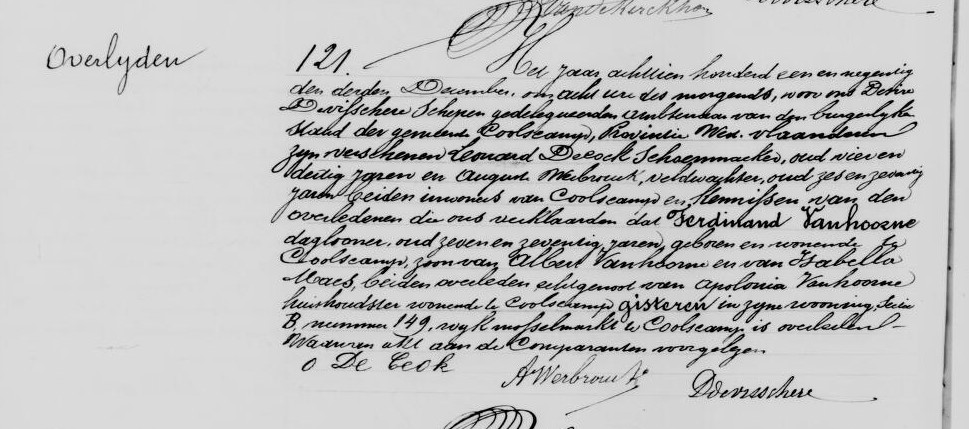 VandeKerckhove
Devisschere
Overlyden
121. Het jaar achttien honderd een en negentig
den derden December, om acht ure des morgends, voor ons
Devisschere Schepen gedelegueerden ambtenaar van den burgerlyke
stand der gemeente Coolscamp, Provintie West-vlaanderen
zyn verschenen Leonard Decock Schoenmaeker, oud vier en
dertig jaren en August Werbrouck, veldwachter, oud zes en zeventig
jaren beiden inwoners van Coolscamp en kennissen van den
overledenen die ons verklaarden dat Ferdinand Vanhoorne
daglooner, oud zeven en zeventig jaren, geboren en wonende te
Coolscamp, zoon van Albert Vanhoorne en van Isabella
Maes, beiden overleden echtgenoot van Apolonia Vanhoorne
huishoudster wonende te Coolscamp gisteren in zyne wooning, Sectie
B, nummer 149, wyk mosselmarkt te Coolscamp is overleden
Waarvan akt aan de Comparanten voorgelezen
De Cock
AWerbrouck
Ddevisschere